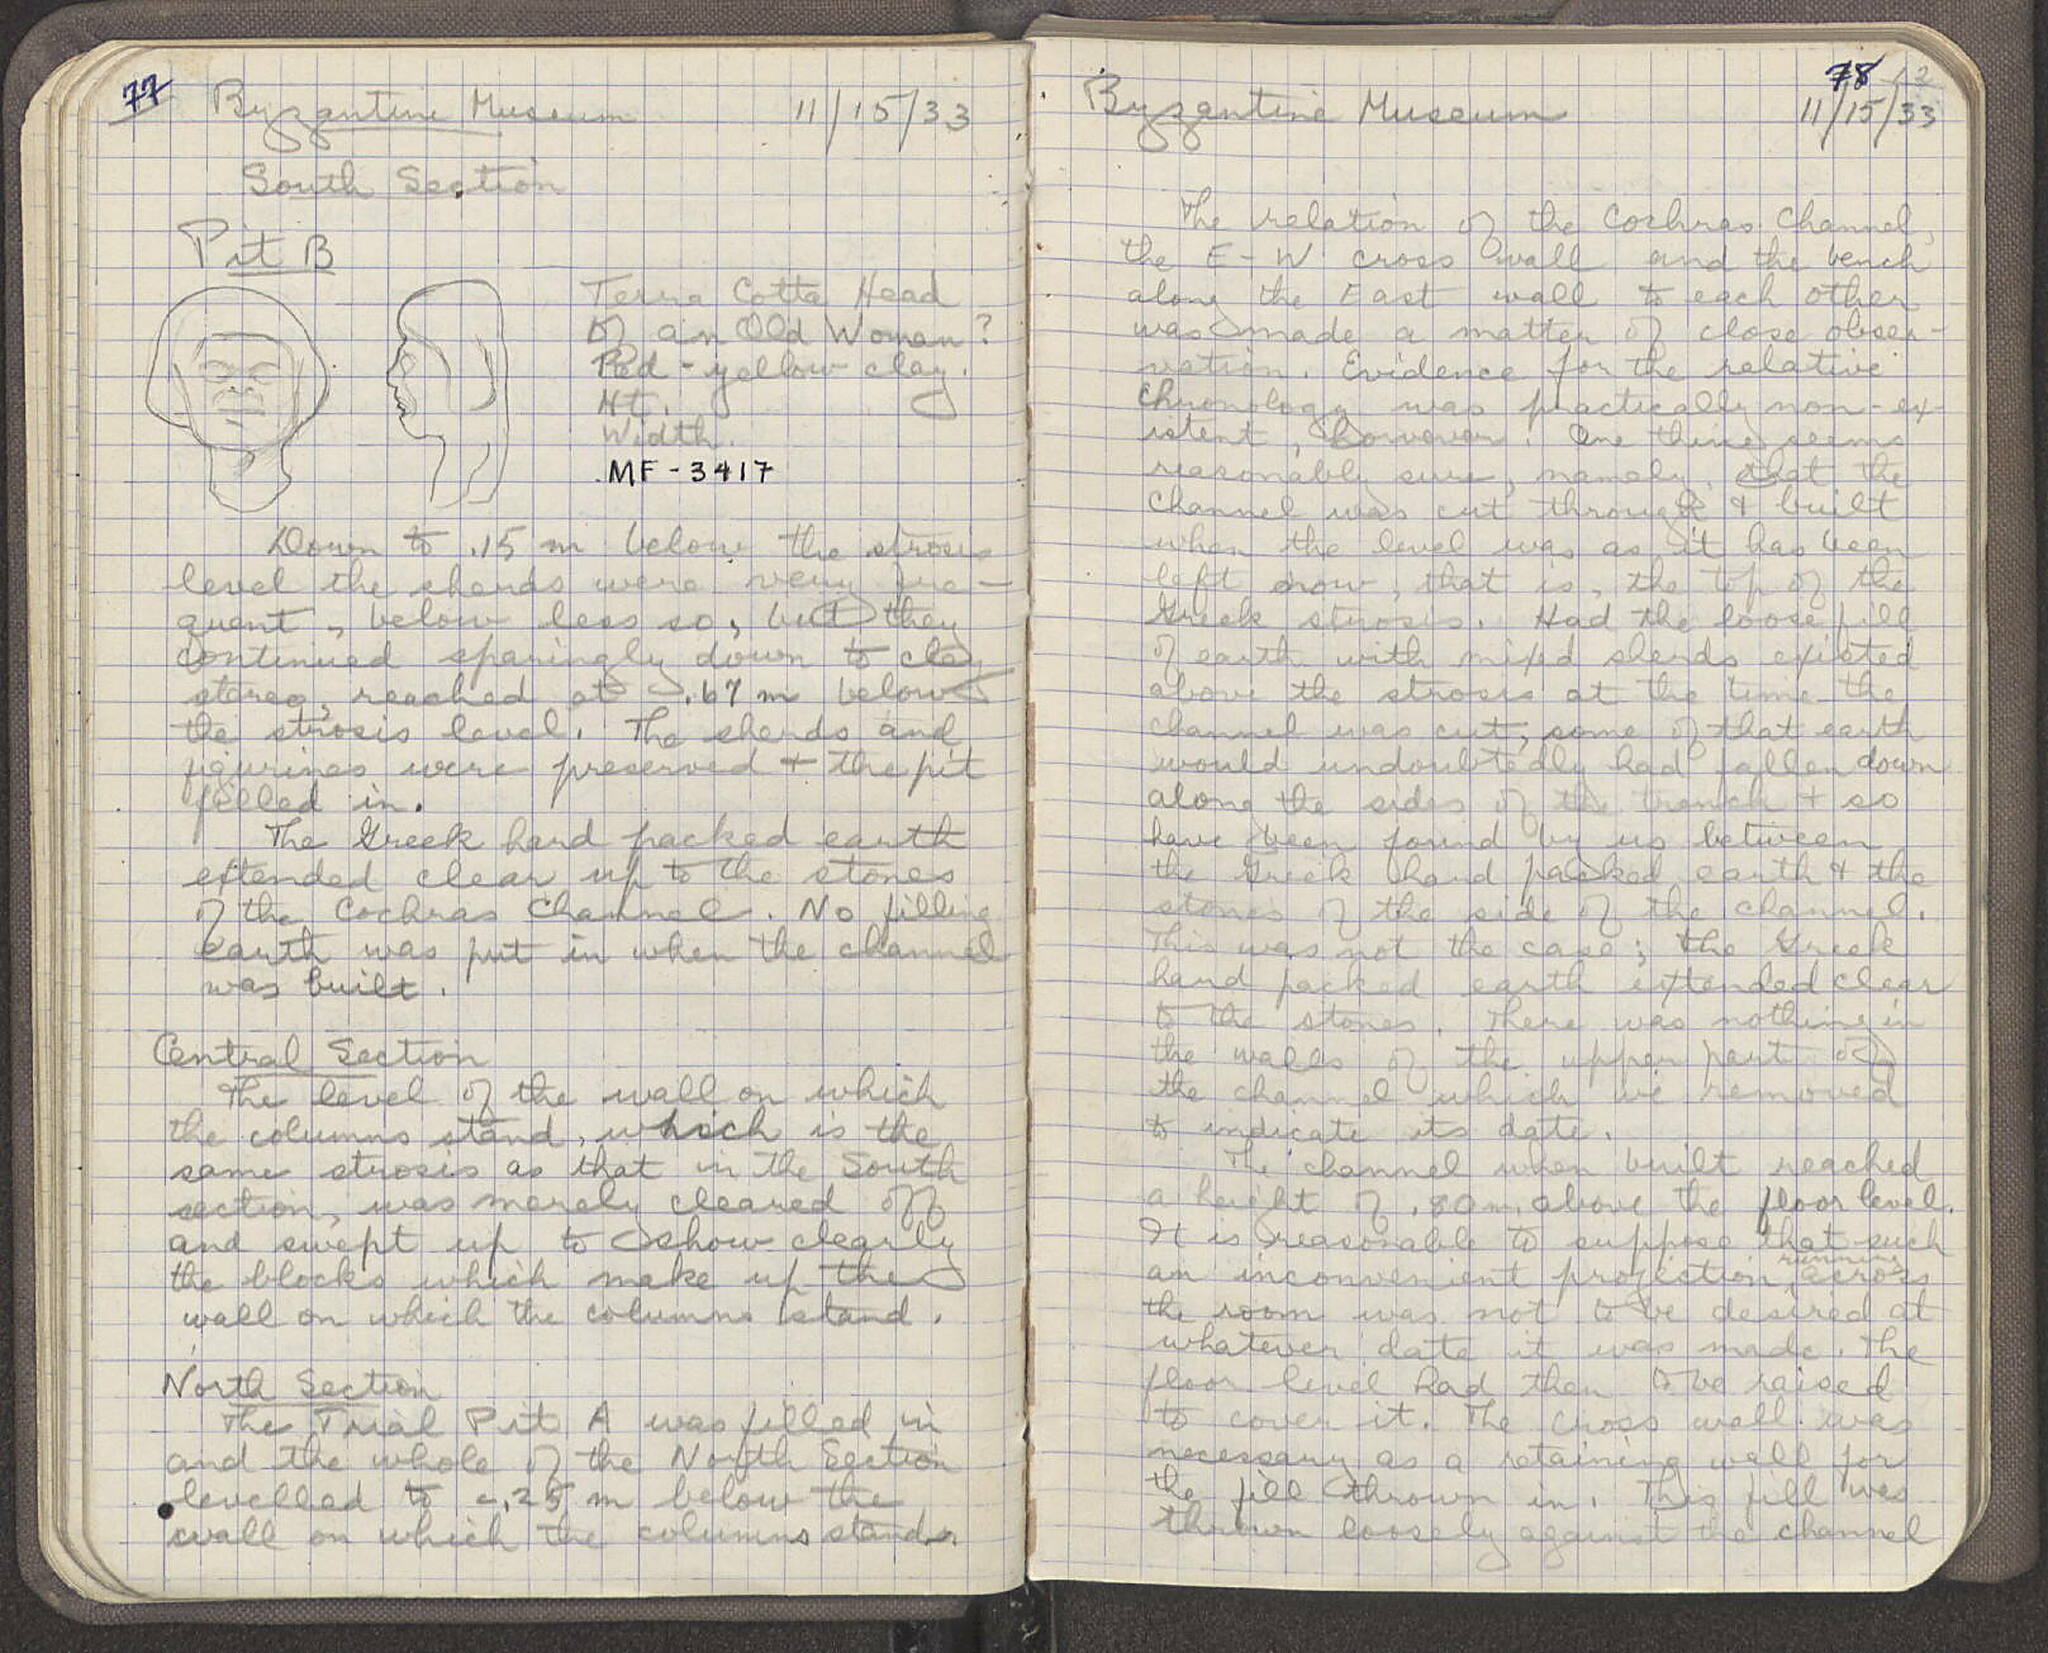 77 Byzantine Museum 11/15/33
South Section
Pit B
Terra Cotta Head
of an Old Woman?
Red-yellow clay.
Ht.
Width.
MF-3417
Down to .15 m below the strosis
level the sherds were very fre-
quent, below less so, but they
continued sparingly down to clay
stereo, reached at .67 m below
the strosis level. The sherds and
figurines were preserved + the pit
filled in.
The Greek hard packed earth
extended clear up to the stones
of the Cochras Channel. No filling
earth was put in when the channel
was built.
Central Section
The level of the wall on which
the columns stand, which is the
same strosis as that in the South
section, was merely cleared off
and swept up to show clearly
the blocks which make up the
wall on which the columns stand.
North Section
The Trial Pit A was filled in
and the whole of the North Section
levelled to c. .25 m below the
wall on which the columns stand.
78
Byzantine Museum 11/15/33
The relation of the Cochras Channel,
the E-W cross wall and the bench
along the East wall to each other
was made a matter of close obser-
vation. Evidence for the relative
chronology was practically non-ex-
istent, however. One thing seems
reasonably sure, namely, that the
channel was cut through & built
when the level was as it has been
left now, that is, the top of the
Greek strosis. Had the loose fill
of earth with mixed sherds existed
above the strosis at the time the
channel was cut, some of that earth
would undoubtedly had fallen down
along the sides of the trench + so
have been found by us between
the Greek hard packed earth & the
stones of the side of the channel.
This was not the case; the Greek
hard packed earth extended clear
to the stones. There was nothing in
the walls of the upper part of
the channel which we removed
to indicate its date.
The channel when built reached
a height of .80 m. above the floor level.
It is reasonable to suppose that such
an inconvenient projection running across
the room was not to be desired at
whatever date it was made. The
floor level had then to be raised
to cover it. The cross wall was
necessary as a retaining wall for
the fill thrown in. This fill was
thrown loosely against the channel